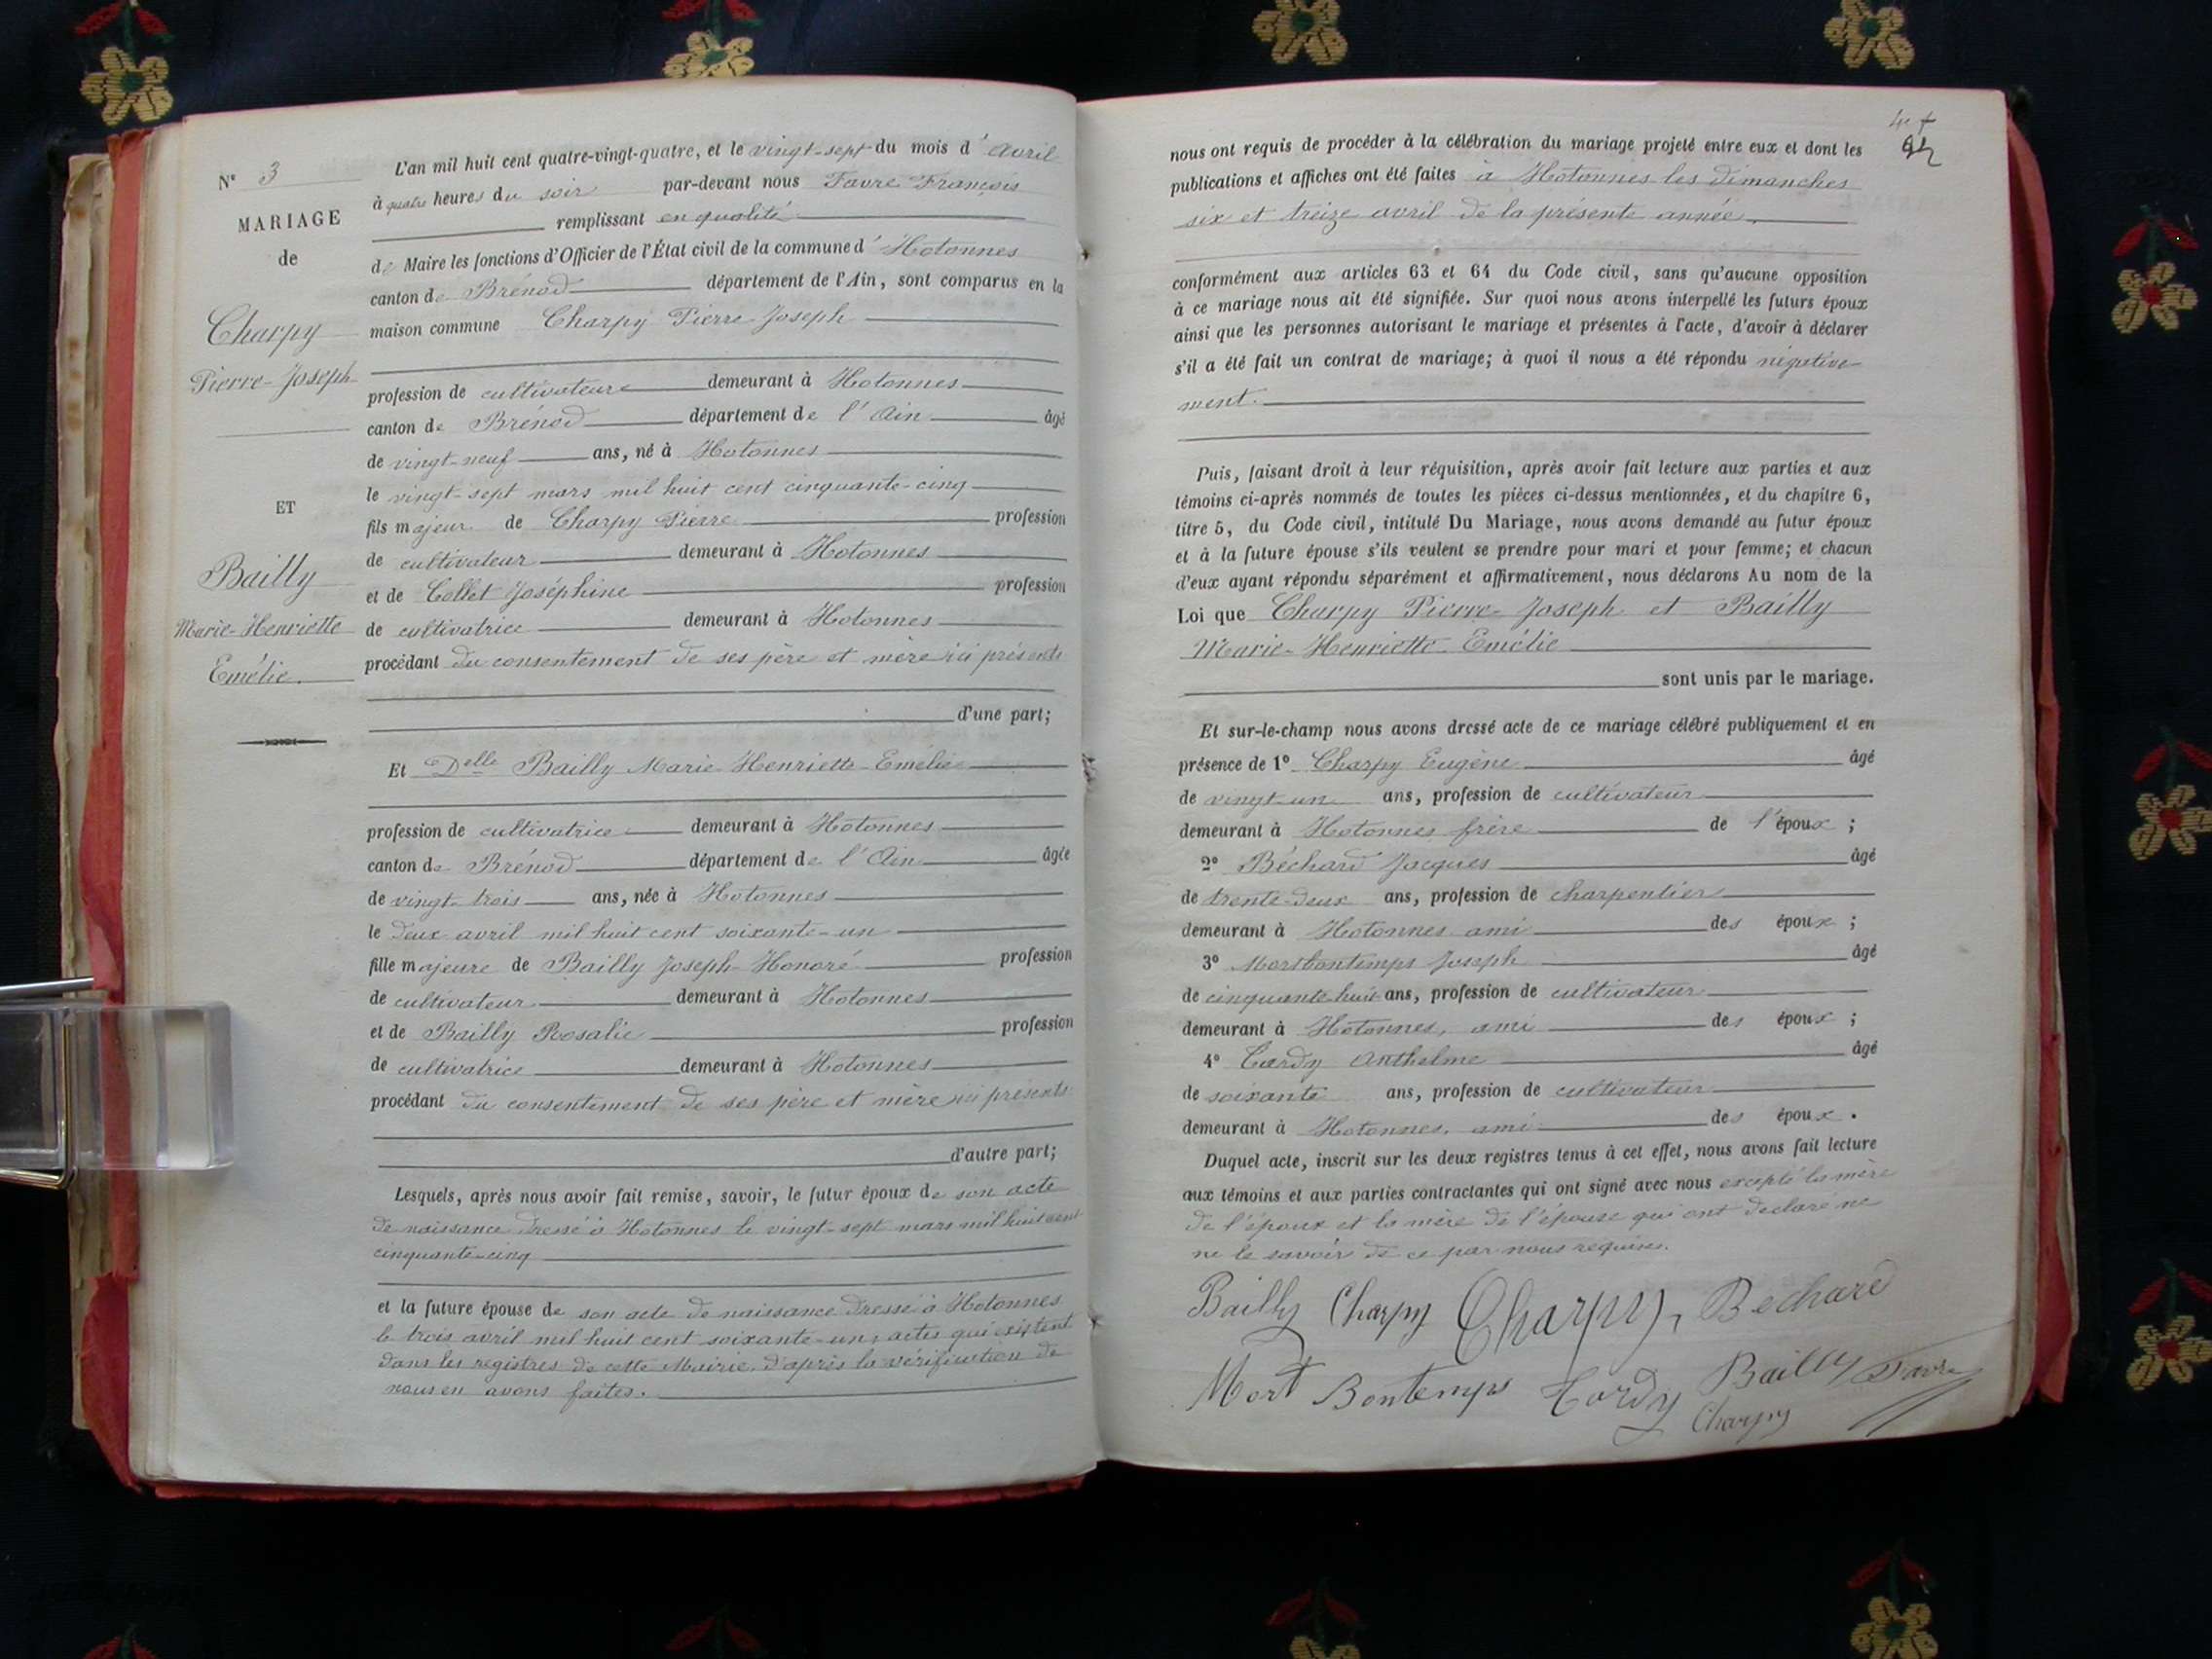 N° 3
MARIAGE
de
Charpy
Pierre-Joseph
ET
Bailly
Marie-Henriette
Emélie.
L'an mil huit cent quatre-vingt-quatre, et le vingt-sept du mois d'avril
à quatre heures du soir par-devant nous Favre François
remplissant en qualité
de Maire les fonctions d'Officier de l'État civil de la commune d'Hotonnes
canton de Brénod département de l'Ain, sont comparus en la
maison commune Charpy Pierre-Joseph
profession de cultivateur demeurant à Hotonnes
canton de Brénod département de l'Ain âgé
de vingt-neuf ans, né à Hotonnes
le vingt-sept mars mil huit cent cinquante-cinq
fils majeur de Charpy Pierre profession
de cultivateur demeurant à Hotonnes
et de Collet Joséphine profession
de cultivatrice demeurant à Hotonnes
procédant du consentement de ses père et mère ici présents
d'une part;
Et Delle Bailly Marie-Henriette-Emélie
profession de cultivatrice demeurant à Hotonnes
canton de Brénod département de l'Ain âgée
de vingt-trois ans, née à Hotonnes
le deux avril mil huit cent soixante-un
fille majeure de Bailly Joseph-Honoré profession
de cultivateur demeurant à Hotonnes
et de Bailly Rosalie profession
de cultivatrice demeurant à Hotonnes
procédant du consentement de ses père et mère ici présents
d'autre part;
Lesquels, après nous avoir fait remise, savoir, le futur époux de son acte
de naissance dressé à Hotonnes le vingt-sept mars mil huit cent
cinquante-cinq
et la future épouse de son acte de naissance dressé à Hotonnes
le trois avril mil huit cent soixante-un, actes qui existent
dans les registres de cette Mairie, d'après la vérification de
nous en avons faites.
nous ont requis de procéder à la célébration du mariage projeté entre eux et dont les
publications et affiches ont été faites à Hotonnes les dimanches
six et treize avril de la présente année.
conformément aux articles 63 et 64 du Code civil, sans qu'aucune opposition
à ce mariage nous ait été signifiée. Sur quoi nous avons interpellé les futurs époux
ainsi que les personnes autorisant le mariage et présentes à l'acte, d'avoir à déclarer
s'il a été fait un contrat de mariage; à quoi il nous a été répondu négative-
ment.
Puis, faisant droit à leur réquisition, après avoir fait lecture aux parties et aux
témoins ci-après nommés de toutes les pièces ci-dessus mentionnées, et du chapitre 6,
titre 5, du Code civil, intitulé Du Mariage, nous avons demandé au futur époux
et à la future épouse s'ils veulent se prendre pour mari et pour femme; et chacun
d'eux ayant répondu séparément et affirmativement, nous déclarons Au nom de la
Loi que Charpy Pierre-Joseph et Bailly
Marie-Henriette-Emélie
sont unis par le mariage.
Et sur-le-champ nous avons dressé acte de ce mariage célébré publiquement et en
présence de 1° Charpy Eugène âgé
de vingt-un ans, profession de cultivateur
demeurant à Hotonnes frère de l'époux;
2° Béchard Jacques âgé
de trente-deux ans, profession de charpentier
demeurant à Hotonnes ami des époux;
3° Mortbontemps Joseph âgé
de cinquante-huit ans, profession de cultivateur
demeurant à Hotonnes, ami des époux;
4° Cardy Anthelme âgé
de soixante ans, profession de cultivateur
demeurant à Hotonnes, ami des époux.
Duquel acte, inscrit sur les deux registres tenus à cet effet, nous avons fait lecture
aux témoins et aux parties contractantes qui ont signé avec nous excepté la mère
de l'époux et la mère de l'épouse qui ont déclaré ne
ne le savoir de ce par nous requises.
Bailly Charpy Charpy Bechard
Mort Bontemps Cardy Bailly Favre
Charpy